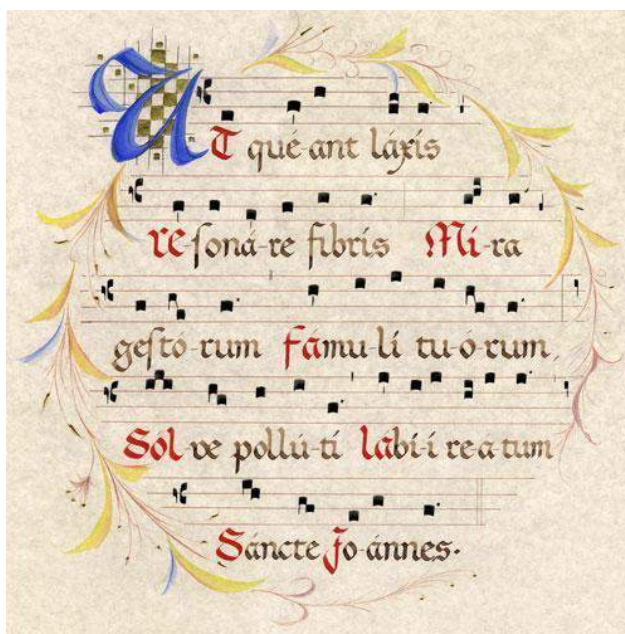 UT qué-ant láxis
re-ſoná-re fibris Mi-ra
geſtó-rum fámu-li tu-ó-rum,
Sol-ve pollú-ti labi-i re-a-tum
Sáncte Jo-ánnes.